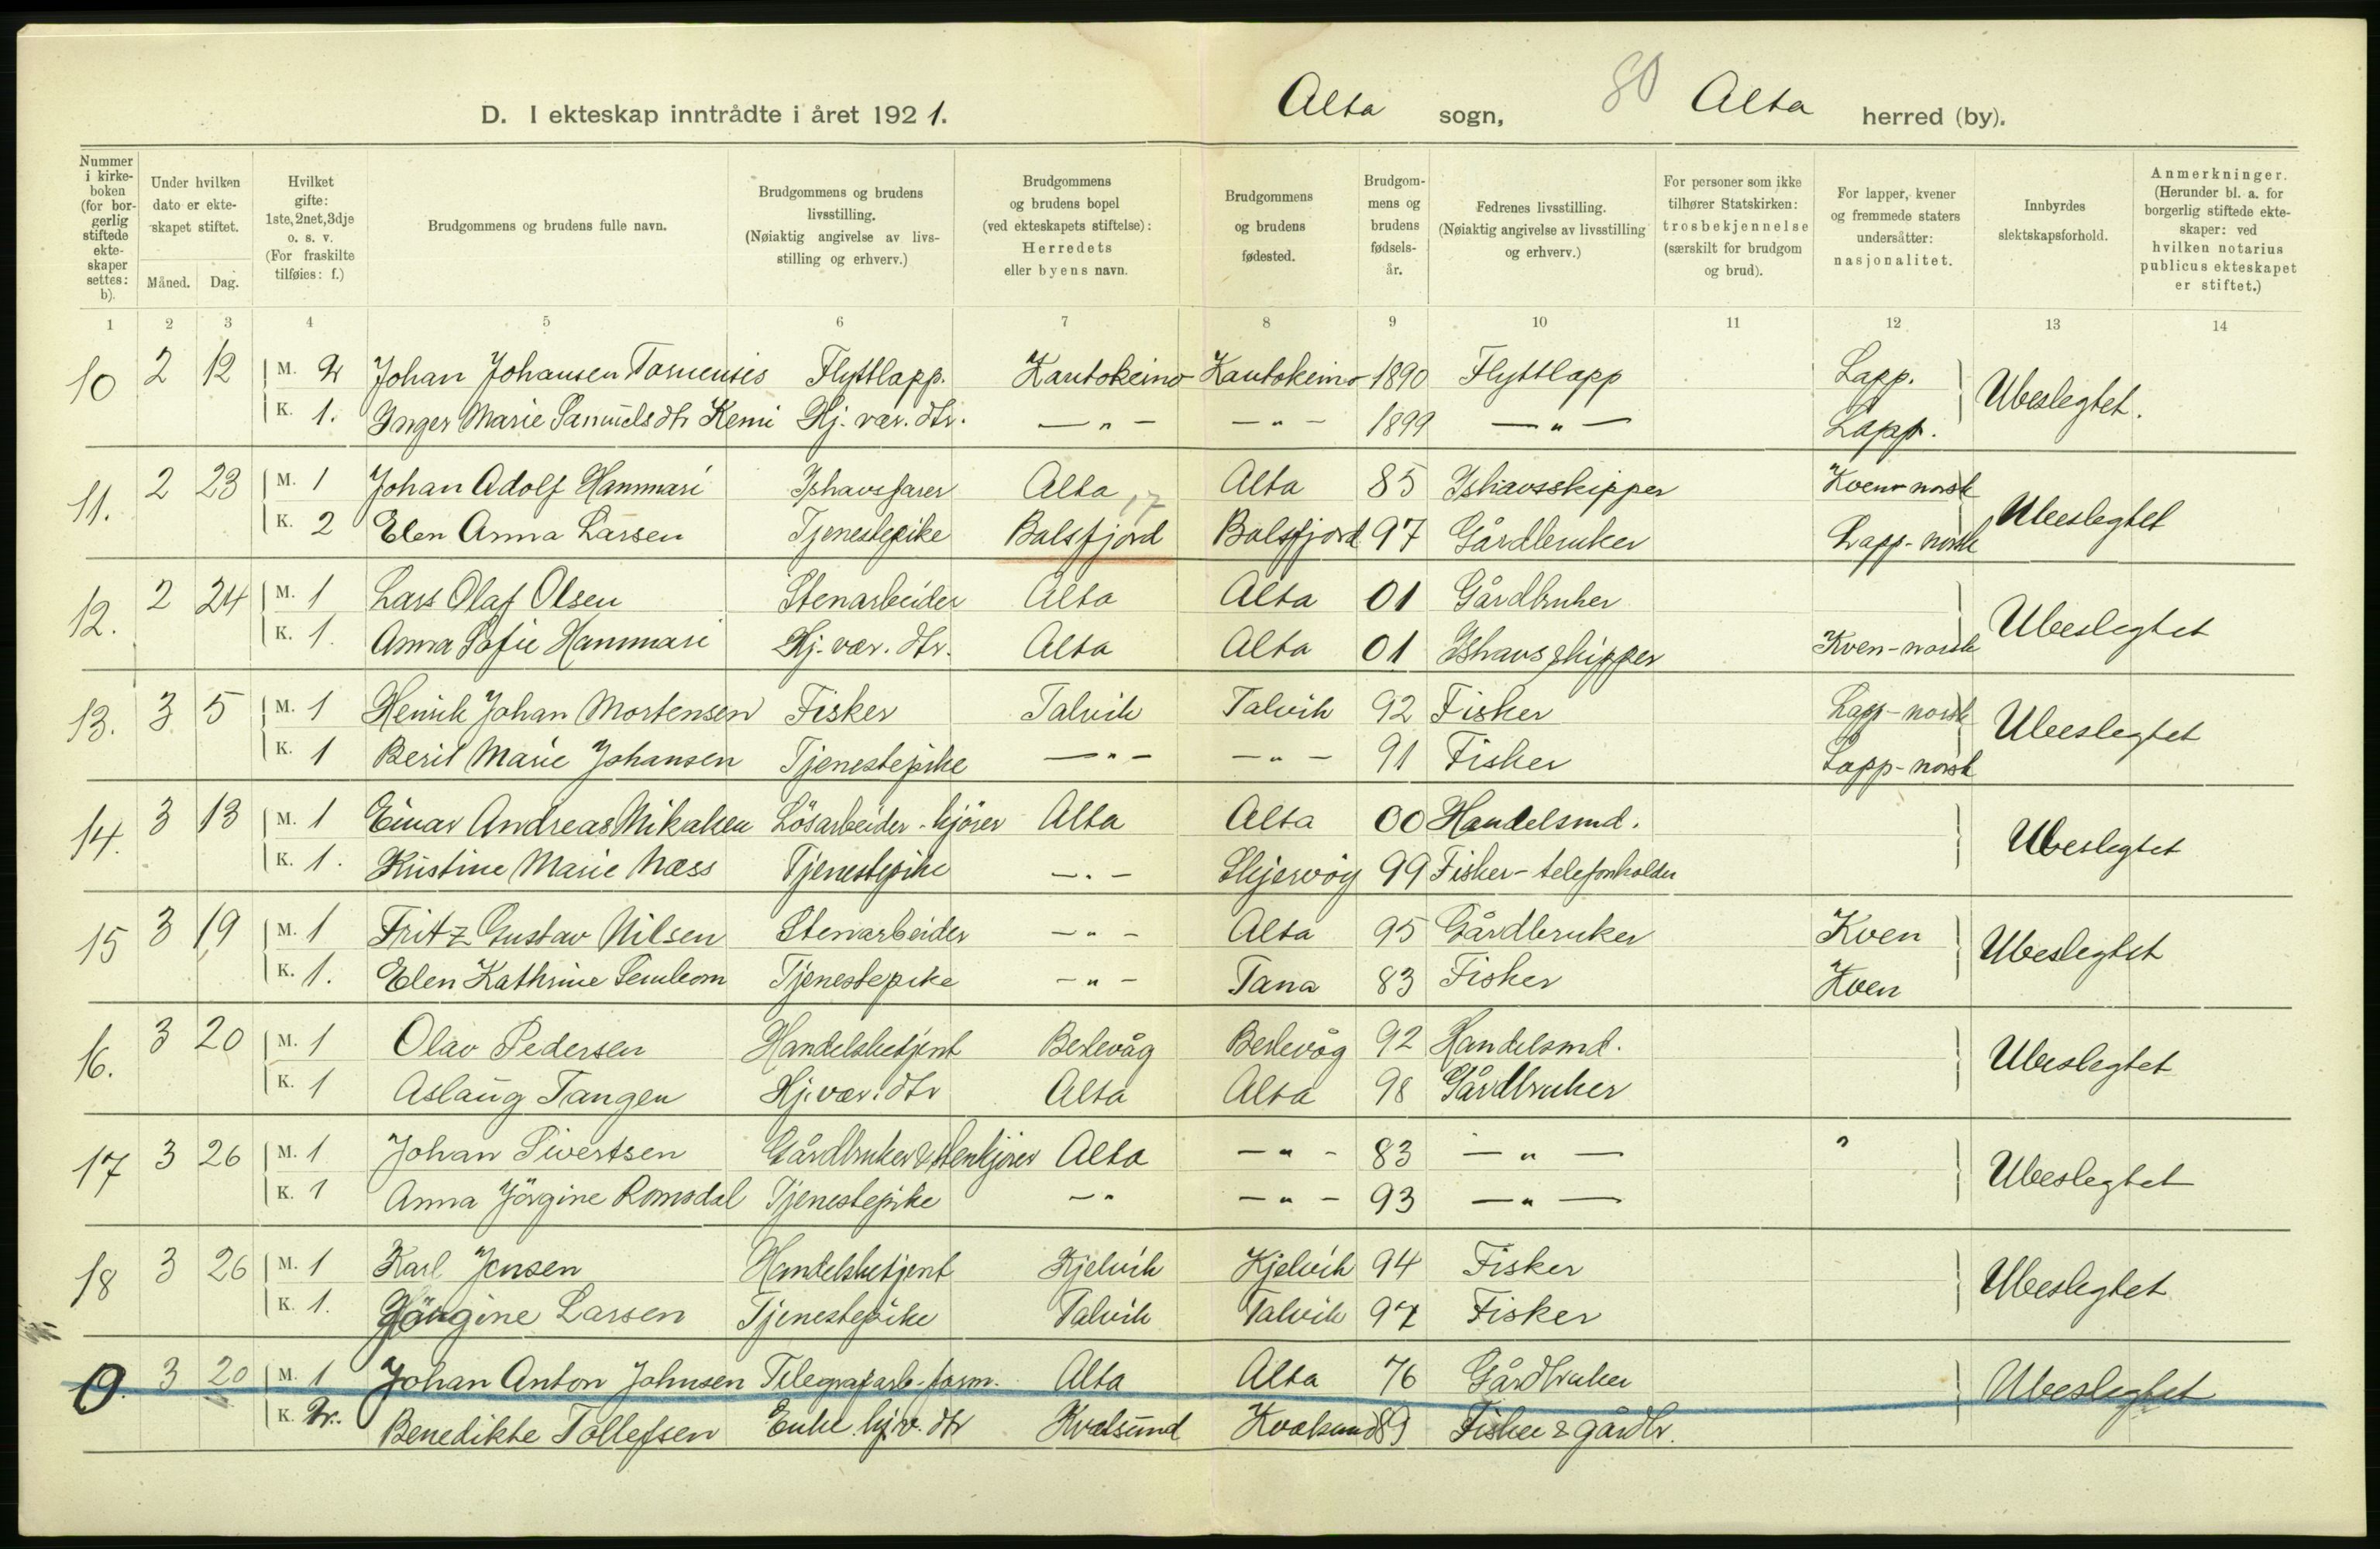 D. I ekteskap inntrådte i året 1921. Alta sogn, 80 Alta herred (by).
Nummer i kirkeboken (for borgerlig stiftede ekteskaper settes: b).
Under hvilken dato er ekteskapet stiftet.
Måned. Dag.
Hvilket gifte: 1ste, 2net, 3dje o. s. v. (For fraskilte tilføies: f.)
Brudgommens og brudens fulle navn.
Brudgommens og brudens livsstilling. (Nøiaktig angivelse av livsstilling og erhverv.)
Brudgommens og brudens bopel (ved ekteskapets stiftelse): Herredets eller byens navn.
Brudgommens og brudens fødested.
Brudgommens og brudens fødselsår.
Fedrenes livsstilling. (Nøiaktig angivelse av livsstilling og erhverv.)
For personer som ikke tilhører Statskirken: trosbekjennelse (særskilt for brudgom og brud).
For lapper, kvener og fremmede staters undersåtter: nasjonalitet.
Innbyrdes slektskapsforhold.
Anmerkninger. (Herunder bl. a. for borgerlig stiftede ekteskaper: ved hvilken notarius publicus ekteskapet er stiftet.)
1 2 3 4 5 6 7 8 9 10 11 12 13 14
10 2 12 M. 2 Johan Johansen Flyttlapp. Kautokeino Kautokeino 1890 Flyttlapp Lapp. Ubeslegtet.
K. 1. Inger Marie Samuelsdtr Kemi Hj. vær. dtr. — " — — " — 1899 — " — Lapp.
11. 2 23 M. 1 Johan Adolf Hammari Ishavsfarer Alta 17 Alta 85 Ishavsskipper Kven-norsk Ubeslegtet
K. 2 Elen Anna Larsen Tjenestepike Balsfjord Balsfjord 97 Gårdbruker Lapp-norsk
12. 2 24 M. 1 Lars Olaf Olsen Stenarbeider Alta Alta 01 Gårdbruker Ubeslegtet
K. 1. Anna Sofie Hammari Hj. vær. dtr. Alta Alta 01 Ishavsskipper Kven-norsk
13. 3 5 M. 1 Henrik Johan Mortensen Fisker Talvik Talvik 92 Fisker Lapp-norsk Ubeslegtet
K. 1 Berit Marie Johansen Tjenestepike — " — — " — 91 Fisker Lapp-norsk
14. 3 13 M. 1 Einar Andreas Mikalsen Lösarbeider-kjörer Alta Alta 00 Handelsmd. Ubeslegtet
K. 1. Kristine Marie Næss Tjenestepike — " — Skjervöy 99 Fisker-telefonholder
15 3 19 M. 1 Fritz Gustav Nilsen Stenarbeider — " — Alta 95 Gårdbruker Kven Ubeslegtet
K. 1. Elen Kathrine Tjenestepike — " — Tana 83 Fisker Kven
16. 3 20 M. 1 Olav Pedersen Handelsbetjent Berlevåg Berlevåg 92 Handelsmd. Ubeslegtet
K. 1 Aslaug Tangen Hj. vær. dtr Alta Alta 98 Gårdbruker
17 3 26 M. 1 Johan Sivertsen Gårdbruker & stenkjörer Alta — " — 83 — " — Ubeslegtet
K. 1 Anna Jörgine Romsdal Tjenestepike — " — " — 93 — " —
18 3 26 M. 1 Karl Jensen Handelsbetjent Kjelvik Kjelvik 94 Fisker Ubeslegtet
K. 1. Jörgine Larsen Tjenestepike Talvik Talvik 97 Fisker
0. 3 20 M. 1 Johan Anton Johnsen Telegrafarb-form. Alta Alta 76 Gårdbruker Ubeslegtet
K. 2. Benedikte Tollefsen Enke hj. v. dtr Kvalsund Kvalsund 89 Fisker & gårdbr.